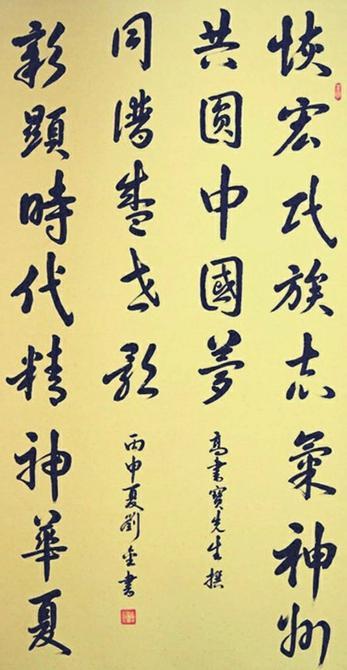 恢宏民族志氣神州
共圓中國夢
高書寶先生撰
彰顯時代精神華夏
同譜盛世歌
丙申夏劉書